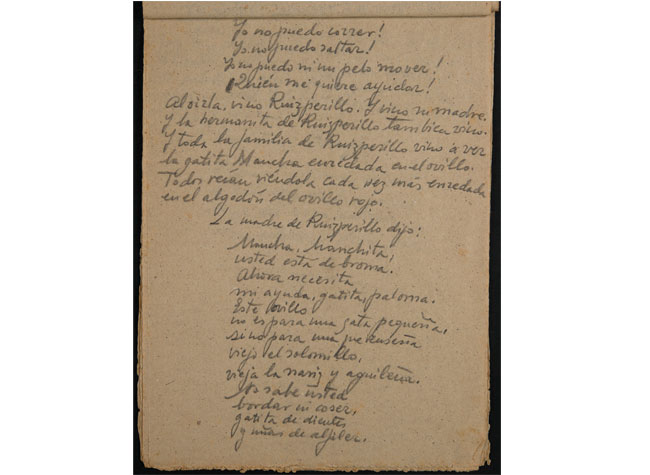 Yo no puedo correr!
Yo no puedo saltar!
Yo no puedo ni un pelo mover!
¡Quién me quiere ayudar!
Al oirla, vino Ruizperillo. Y vino su madre.
Y la hermanita de Ruizperillo tambien vino.
Y toda la familia de Ruizperillo vino a ver
la gatita Mancha enredada en el ovillo.
Todos reían viéndola cada vez más enredada
en el algodón del ovillo rojo.
La madre de Ruizperillo dijo:
Mancha, Manchita,
usted está de broma.
Ahora necesita
mi ayuda, gatita, paloma.
Este ovillo
no es para una gata pequeña,
sino para una que enseña
viejo el solomillo,
vieja la nariz y aguileña.
No sabe usted
bordar ni coser,
gatita de dientes
y uñas de aljiber.